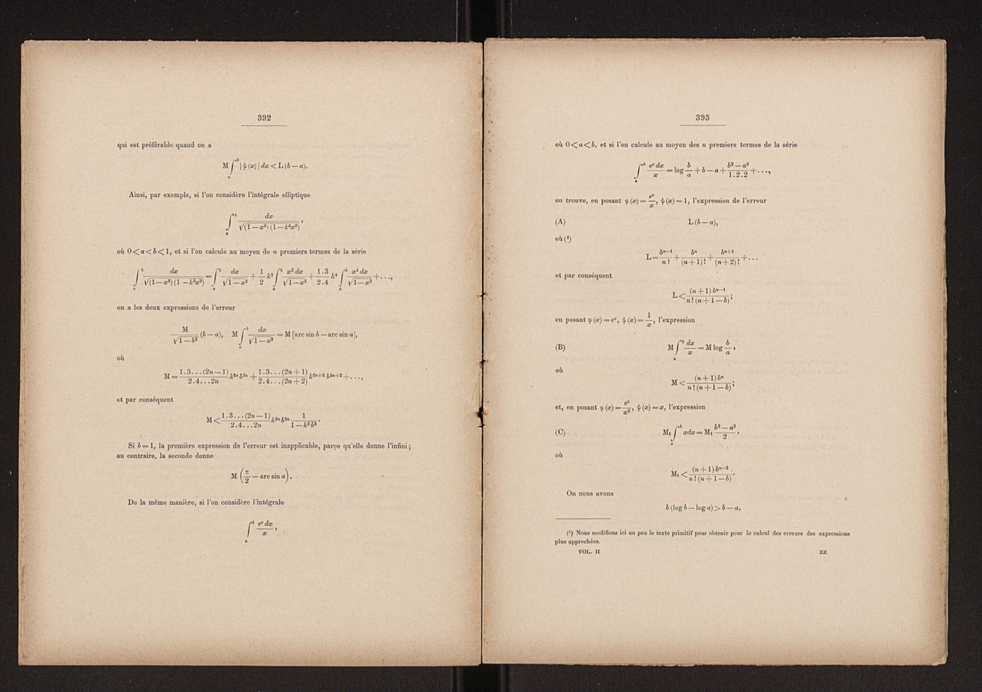 392
qui est préférable quand on a
M ∫_a^b | ψ (x) | dx < L (b — a).
Ainsi, par exemple, si l'on considère l'intégrale elliptique
∫_a^b dx / √(1 — x²) (1 — k²x²) ,
où 0 < a < b < 1, et si l'on calcule au moyen de n premiers termes de la série
∫_a^b dx / √(1—x²) (1 — k²x²) = ∫_a^b dx / √1—x² + 1/2 k² ∫_a^b x² dx / √1—x² + 1.3 / 2.4 k⁴ ∫_a^b x⁴ dx / √1—x² + . . . ,
on a les deux expressions de l'erreur
M / √1 — b² (b — a), M ∫_a^b dx / √1 — x² = M [arc sin b — arc sin a],
où
M = 1.3...(2n—1) / 2.4...2n k²ⁿ b²ⁿ + 1.3...(2n+1) / 2.4...(2n+2) k²ⁿ⁺² b²ⁿ⁺² + . . . ,
et par conséquent
M < 1.3...(2n—1) / 2.4...2n k²ⁿ b²ⁿ 1 / 1 — k²b² .
Si b = 1, la première expression de l'erreur est inapplicable, parçe qu'elle donne l'infini ;
au contraire, la seconde donne
M (π/2 — arc sin a) .
De la même manière, si l'on considère l'intégrale
∫_a^b eˣ dx / x ,
393
où 0 < a < b, et si l'on calcule au moyen des n premiers termes de la série
∫_a^b eˣ dx / x = log b/a + b — a + b² — a² / 1.2.2 + . . . ,
on trouve, en posant φ (x) = eˣ/x , ψ (x) = 1, l'expression de l'erreur
(A) L (b — a),
où (¹)
L = bⁿ⁻¹ / n ! + bⁿ / (n+1) ! + bⁿ⁺¹ / (n+2) ! + . . .
et par conséquent
L < (n + 1) bⁿ⁻¹ / n ! (n + 1 — b) ;
en posant φ (x) = eˣ, ψ (x) = 1/x , l'expression
(B) M ∫_a^b dx / x = M log b/a ,
où
M < (n + 1) bⁿ / n ! (n + 1 — b) ;
et, en posant φ (x) = eˣ/x² , ψ (x) = x, l'expression
(C) M₁ ∫_a^b xdx = M₁ b² — a² / 2 ,
où
M₁ < (n + 1) bⁿ⁻² / n ! (n + 1 — b) .
On nous avons
b (log b — log a) > b — a,
(¹) Nous modifions ici un peu le texte primitif pour obtenir pour le calcul des erreurs des expressions
plus approchées.
VOL. II EE